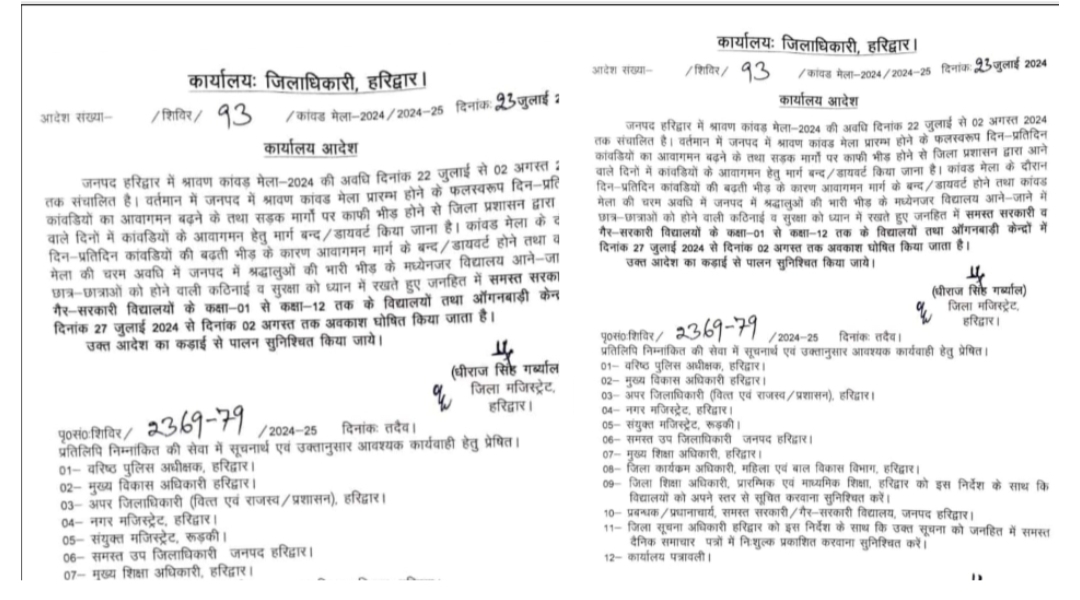 कार्यालयः जिलाधिकारी, हरिद्वार।
आदेश संख्या– /शिविर/ 93 /कांवड मेला–2024/2024–25 दिनांकः 23 जुलाई
कार्यालय आदेश
जनपद हरिद्वार में श्रावण कांवड मेला–2024 की अवधि दिनांक 22 जुलाई से 02 अगस्त
तक संचालित है। वर्तमान में जनपद में श्रावण कांवड मेला प्रारम्भ होने के फलस्वरूप दिन–प्रति
कांवडियों का आवागमन बढ़ने के तथा सड़क मार्गो पर काफी भीड़ होने से जिला प्रशासन द्वारा
वाले दिनों में कांवडियों के आवागमन हेतु मार्ग बन्द/डायवर्ट किया जाना है। कांवड मेला के
दिन–प्रतिदिन कांवडियों की बढ़ती भीड़ के कारण आवागमन मार्ग के बन्द/डायवर्ट होने तथा
मेला की चरम अवधि में जनपद में श्रद्धालुओं की भारी भीड़ के मध्येनजर विद्यालय आने–जा
छात्र–छात्राओं को होने वाली कठिनाई व सुरक्षा को ध्यान में रखते हुए जनहित में समस्त सरका
गैर–सरकारी विद्यालयों के कक्षा–01 से कक्षा–12 तक के विद्यालयों तथा ऑगनबाड़ी केन्
दिनांक 27 जुलाई 2024 से दिनांक 02 अगस्त तक अवकाश घोषित किया जाता है।
उक्त आदेश का कड़ाई से पालन सुनिश्चित किया जाये।
(धीराज सिंह गर्ब्याल
जिला मजिस्ट्रेट,
हरिद्वार।
पृ०सं०:शिविर/ 2369-79 /2024–25 दिनांकः तदैव।
प्रतिलिपि निम्नांकित की सेवा में सूचनार्थ एवं उक्तानुसार आवश्यक कार्यवाही हेतु प्रेषित।
01– वरिष्ठ पुलिस अधीक्षक, हरिद्वार।
02– मुख्य विकास अधिकारी हरिद्वार।
03– अपर जिलाधिकारी (वित्त एवं राजस्व/प्रशासन), हरिद्वार।
04– नगर मजिस्ट्रेट, हरिद्वार।
05– संयुक्त मजिस्ट्रेट, रूड़की।
06– समस्त उप जिलाधिकारी जनपद हरिद्वार।
07– मुख्य शिक्षा अधिकारी, हरिद्वार।
कार्यालयः जिलाधिकारी, हरिद्वार।
आदेश संख्या– /शिविर/ 93 /कांवड मेला–2024/2024–25 दिनांकः 23 जुलाई 2024
कार्यालय आदेश
जनपद हरिद्वार में श्रावण कांवड मेला–2024 की अवधि दिनांक 22 जुलाई से 02 अगस्त 2024
तक संचालित है। वर्तमान में जनपद में श्रावण कांवड मेला प्रारम्भ होने के फलस्वरूप दिन–प्रतिदिन
कांवडियों का आवागमन बढ़ने के तथा सड़क मार्गो पर काफी भीड़ होने से जिला प्रशासन द्वारा आने
वाले दिनों में कांवडियों के आवागमन हेतु मार्ग बन्द/डायवर्ट किया जाना है। कांवड मेला के दौरान
दिन–प्रतिदिन कांवडियों की बढ़ती भीड़ के कारण आवागमन मार्ग के बन्द/डायवर्ट होने तथा कांवड
मेला की चरम अवधि में जनपद में श्रद्धालुओं की भारी भीड़ के मध्येनजर विद्यालय आने–जाने में
छात्र–छात्राओं को होने वाली कठिनाई व सुरक्षा को ध्यान में रखते हुए जनहित में समस्त सरकारी व
गैर–सरकारी विद्यालयों के कक्षा–01 से कक्षा–12 तक के विद्यालयों तथा ऑगनबाड़ी केन्द्रों में
दिनांक 27 जुलाई 2024 से दिनांक 02 अगस्त तक अवकाश घोषित किया जाता है।
उक्त आदेश का कड़ाई से पालन सुनिश्चित किया जाये।
(धीराज सिंह गर्ब्याल)
जिला मजिस्ट्रेट,
हरिद्वार।
पृ०सं०:शिविर/ 2369-79 /2024–25 दिनांकः तदैव।
प्रतिलिपि निम्नांकित की सेवा में सूचनार्थ एवं उक्तानुसार आवश्यक कार्यवाही हेतु प्रेषित।
01– वरिष्ठ पुलिस अधीक्षक, हरिद्वार।
02– मुख्य विकास अधिकारी हरिद्वार।
03– अपर जिलाधिकारी (वित्त एवं राजस्व/प्रशासन), हरिद्वार।
04– नगर मजिस्ट्रेट, हरिद्वार।
05– संयुक्त मजिस्ट्रेट, रूड़की।
06– समस्त उप जिलाधिकारी जनपद हरिद्वार।
07– मुख्य शिक्षा अधिकारी, हरिद्वार।
08– जिला कार्यकम अधिकारी, महिला एवं बाल विकास विभाग, हरिद्वार।
09– जिला शिक्षा अधिकारी, प्रारम्भिक एवं माध्यमिक शिक्षा, हरिद्वार को इस निर्देश के साथ कि
विद्यालयों को अपने स्तर से सूचित करवाना सुनिश्चित करें।
10– प्रबन्धक/प्रधानाचार्य, समस्त सरकारी/गैर–सरकारी विद्यालय, जनपद हरिद्वार।
11– जिला सूचना अधिकारी हरिद्वार को इस निर्देश के साथ कि उक्त सूचना को जनहित में समस्त
दैनिक समाचार पत्रों में निःशुल्क प्रकाशित करवाना सुनिश्चित करें।
12– कार्यालय पत्रावली।